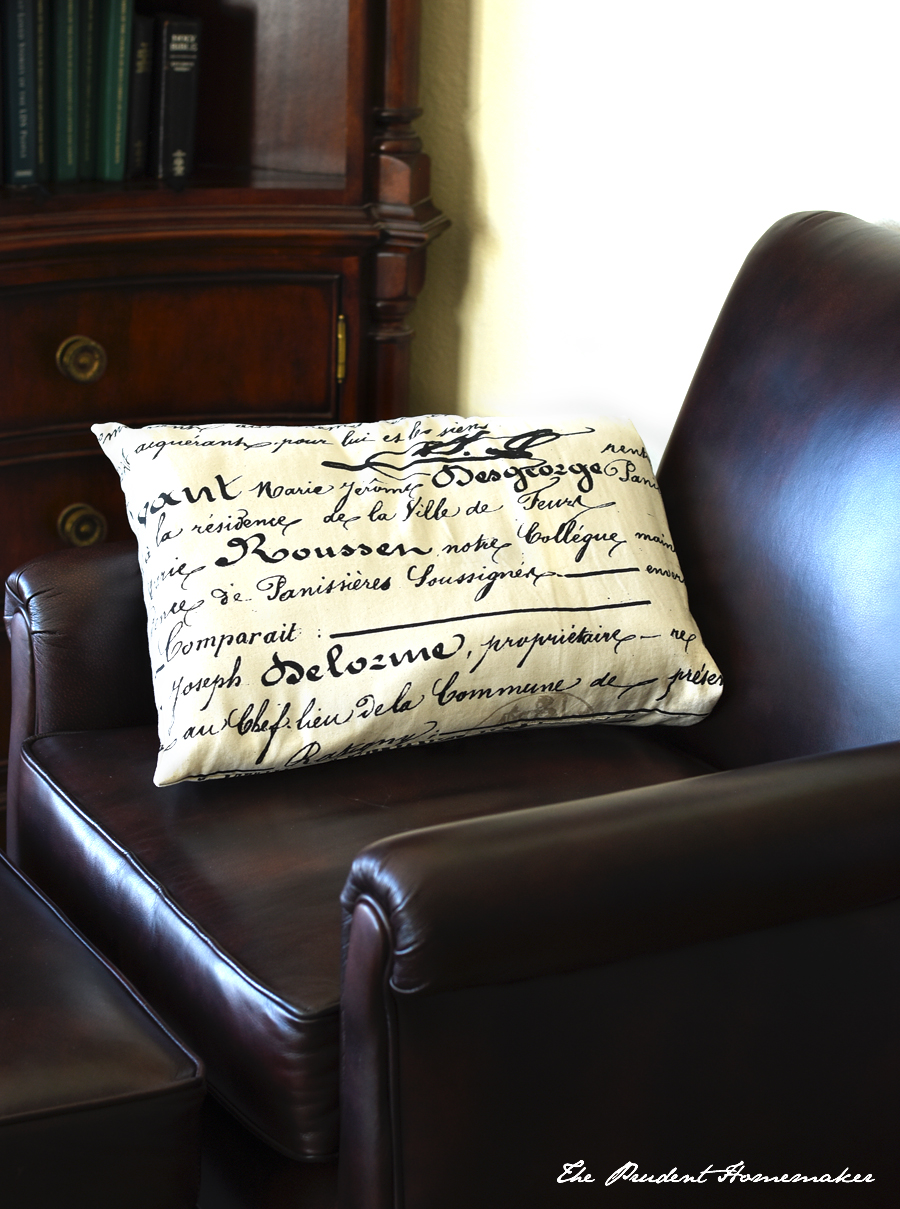 HOLY BIBLE
aiquérant pour lui et les siens
rent
vant Marie Jérôme Desgeorge Pan
la résidence de la Ville de Feurs
Roussen notre Collégue main
de Panissières Soussignés envir
Comparait :
Joseph Delorme, propriétaire — re
au Chef-lieu de la Commune de présen
The Prudent Homemaker